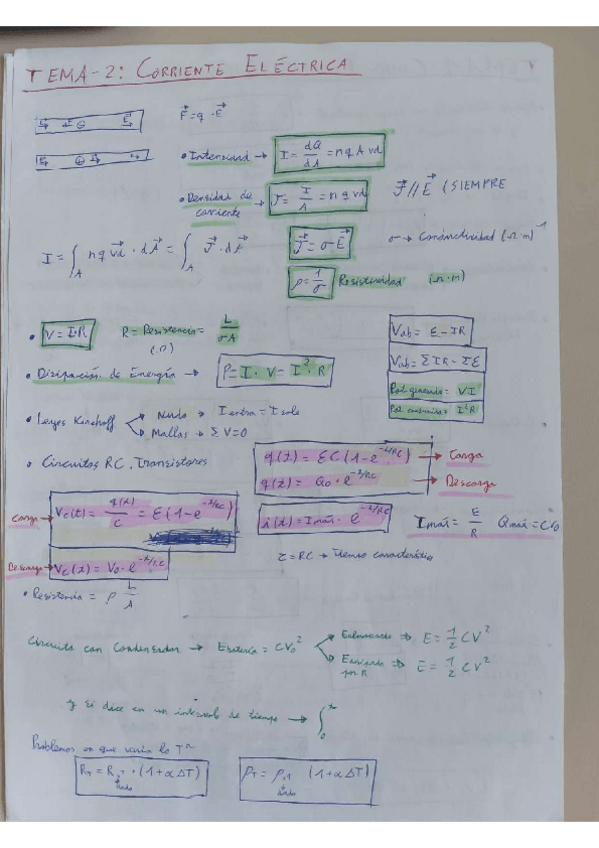 TEMA-2: CORRIENTE ELÉCTRICA
E ← ⊖ E
F = q · E
E ⊕→ →
• Intensidad → I = dQ/dA = n q A vd
• Densidad de corriente → J = I/A = n q vd
J // E (SIEMPRE
I = ∫_A n q vd · dA = ∫_A J · dA
J = σ · E
σ → Conductividad (Ω·m)⁻¹
ρ = 1/σ Resistividad (Ω·m)
• V = I·R
R = Resistencia = L/σA
(Ω)
Vab = E - IR
Vab = ΣIR - ΣE
• Disipación de Energía → P = I · V = I² · R
Pot generada = VI
Pot consumida = I²R
• Leyes Kirchoff
Nudo → I entra = I sale
Mallas → ΣV=0
• Circuitos RC, Transistores
q(t) = EC (1-e^(-t/RC)) → Carga
q(t) = Q0 · e^(-t/RC) → Descarga
Carga → Vc(t) = q(t)/C = E(1-e^(-t/RC))
i(t) = Imáx · e^(-t/RC)
Imáx = E/R Qmáx = CV0
Descarga → Vc(t) = V0 · e^(-t/RC)
τ = RC → Tiempo característico
• Resistencia = ρ L/A
Circuito con Condensador → = CV0²
→ E = 1/2 CV²
por R → E = 1/2 CV²
y si dice en un intervalo de tiempo → ∫_0^t
Problemas en que varía la Tª
R_T = R · (1+αΔT)
ρ_T = ρ (1+αΔT)